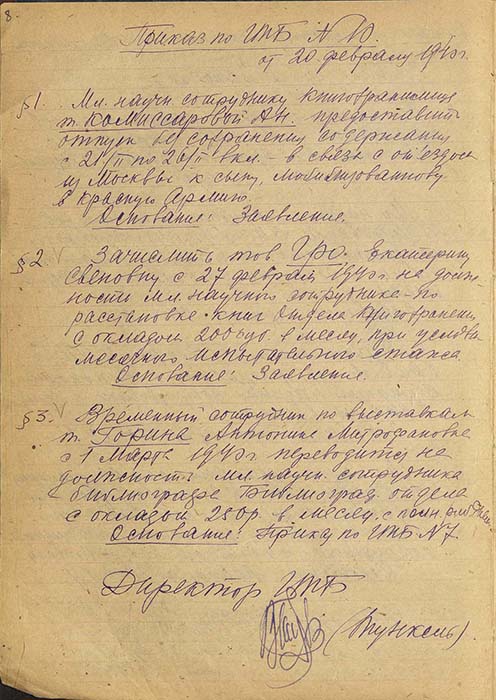 8.
Приказ по ЦТБ № 10.
от 20 февраля 1940г.
§1. Мл. научн сотруднику книгохранилища
т. Комиссаровой А.Н. предоставить
отпуск без сохранения содержания
с 21/II по 26/II вкл. - в связи с от'ездом
из Москвы к сыну, мобилизованному
в Красную Армию.
Основание: Заявление.
§2 Зачислить тов Гро. Екатерину
Свеновну с 27 февраля 1940г на долж-
ность мл. научного сотрудника - по
расстановке книг отдела книгохранения,
с окладом 200 руб. в месяц, при условии
месячного испытательного стажа
Основание: Заявление.
§3. Временный сотрудник по выставкам
т. Горина Антонина Митрофановна
с 1 Марта 1940г переводится на
должность мл. научн. сотрудника
библиографа Библиограф. отдела
с окладом 250р. в месяц, с
Основание: Приказ по ЦТБ №7.
Директор ЦТБ
(Тункель)